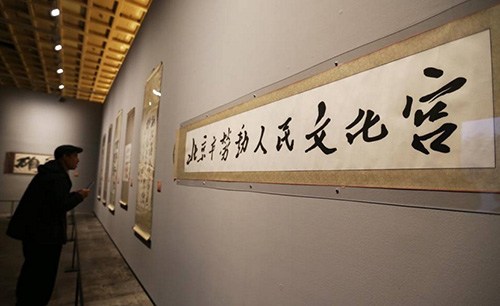 北京市勞動人民文化宫